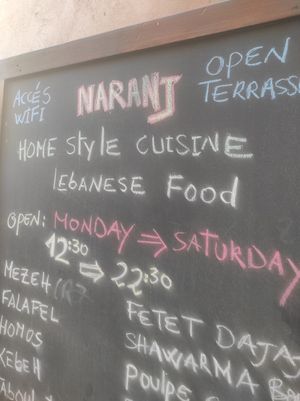 ACCÉS
WIFI
NARANJ
OPEN
TERRASS
HOME STYLE CUISINE
LEBANESE FOOD
OPEN: MONDAY ⇒ SATURDAY
12:30 ⇒ 22:30
MEZEH
FALAFEL
HOMOS
KEBEH
FETET DAJAJ
SHAWARMA BA
POULPE